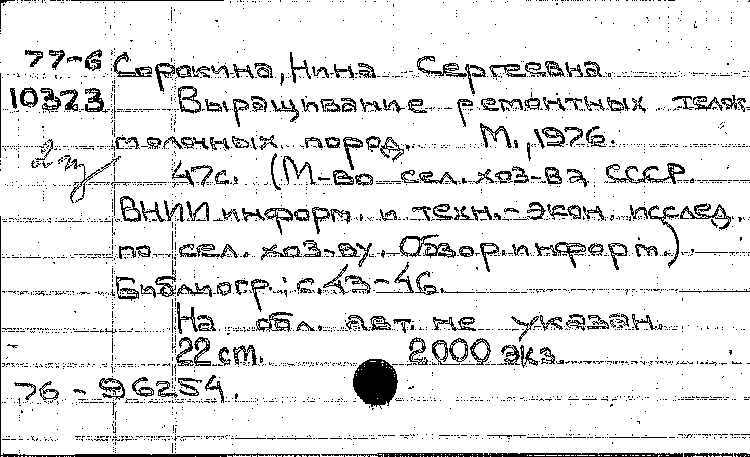 77-6 Сорокина, Нина Сергеевна
10323 Выращивание ремонтных телок
молочных пород. М., 1976.
47с. (М-во сел. хоз-ва СССР
ВНИИ информ. и техн.-экон. исслед.
по сел. хоз-ву. Обзор. информ.).
Библиогр.: с. 43-46.
На обл. авт. не указан.
22 cm. 2000 экз.
76 - 96254.